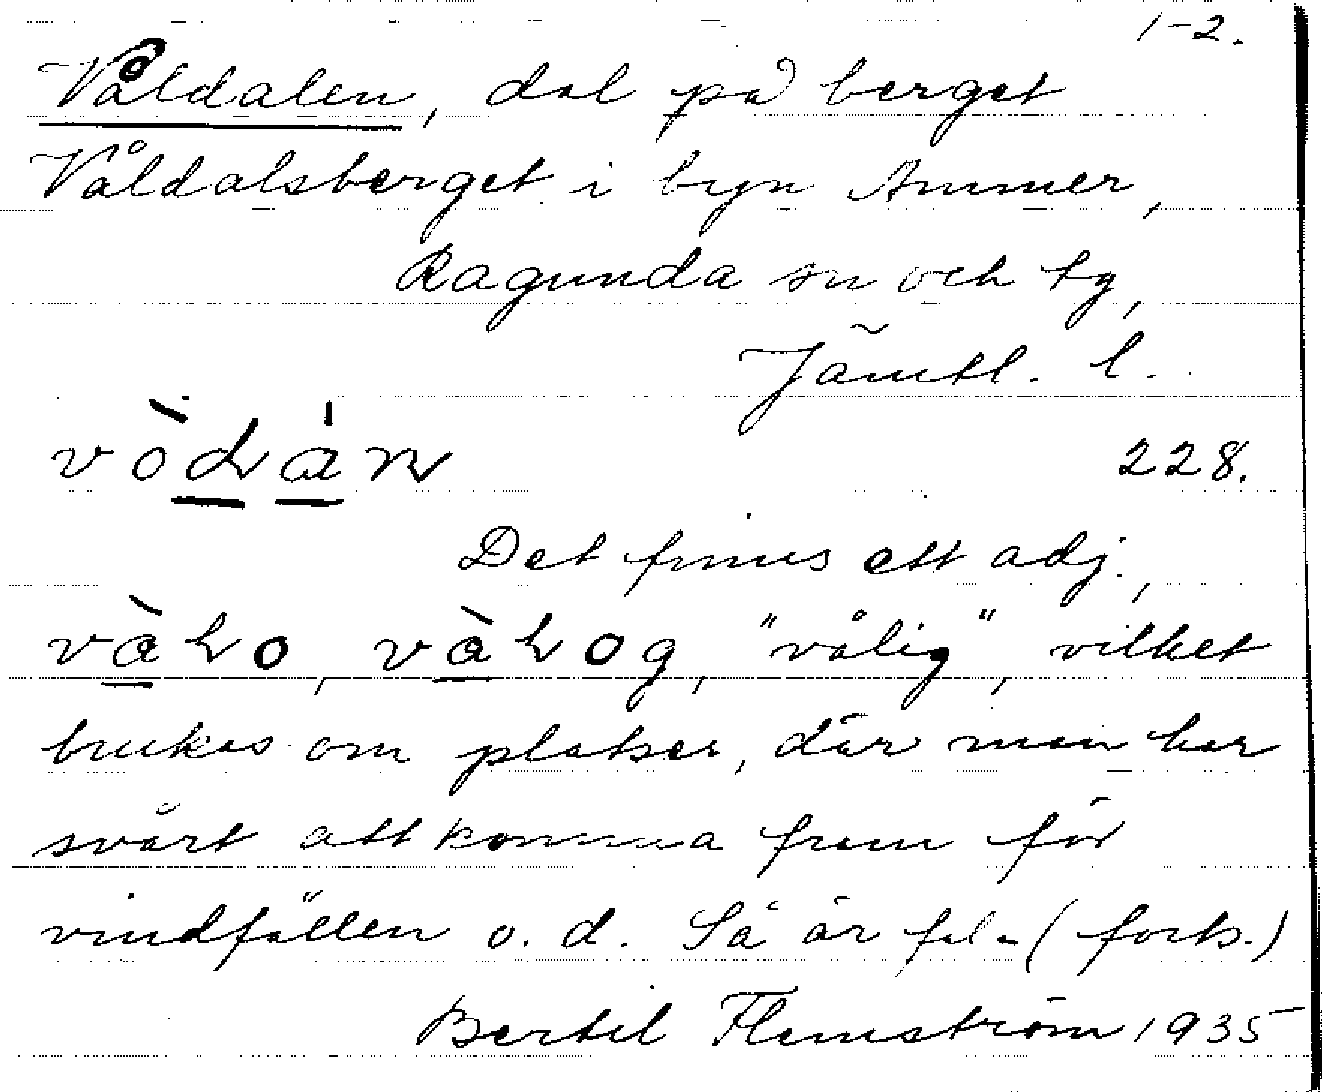 1-2.
Våldalen, dal på berget
Våldalsberget i byn Ammer,
Ragunda sn och tg,
Jämtl. l.
228.
Det finns ett adj.,
"vålig", vilket
brukas om platser, där man har
svårt att komma fram för
vindfällen o. d. Så är fal- (forts.)
Bertil Flemström 1935